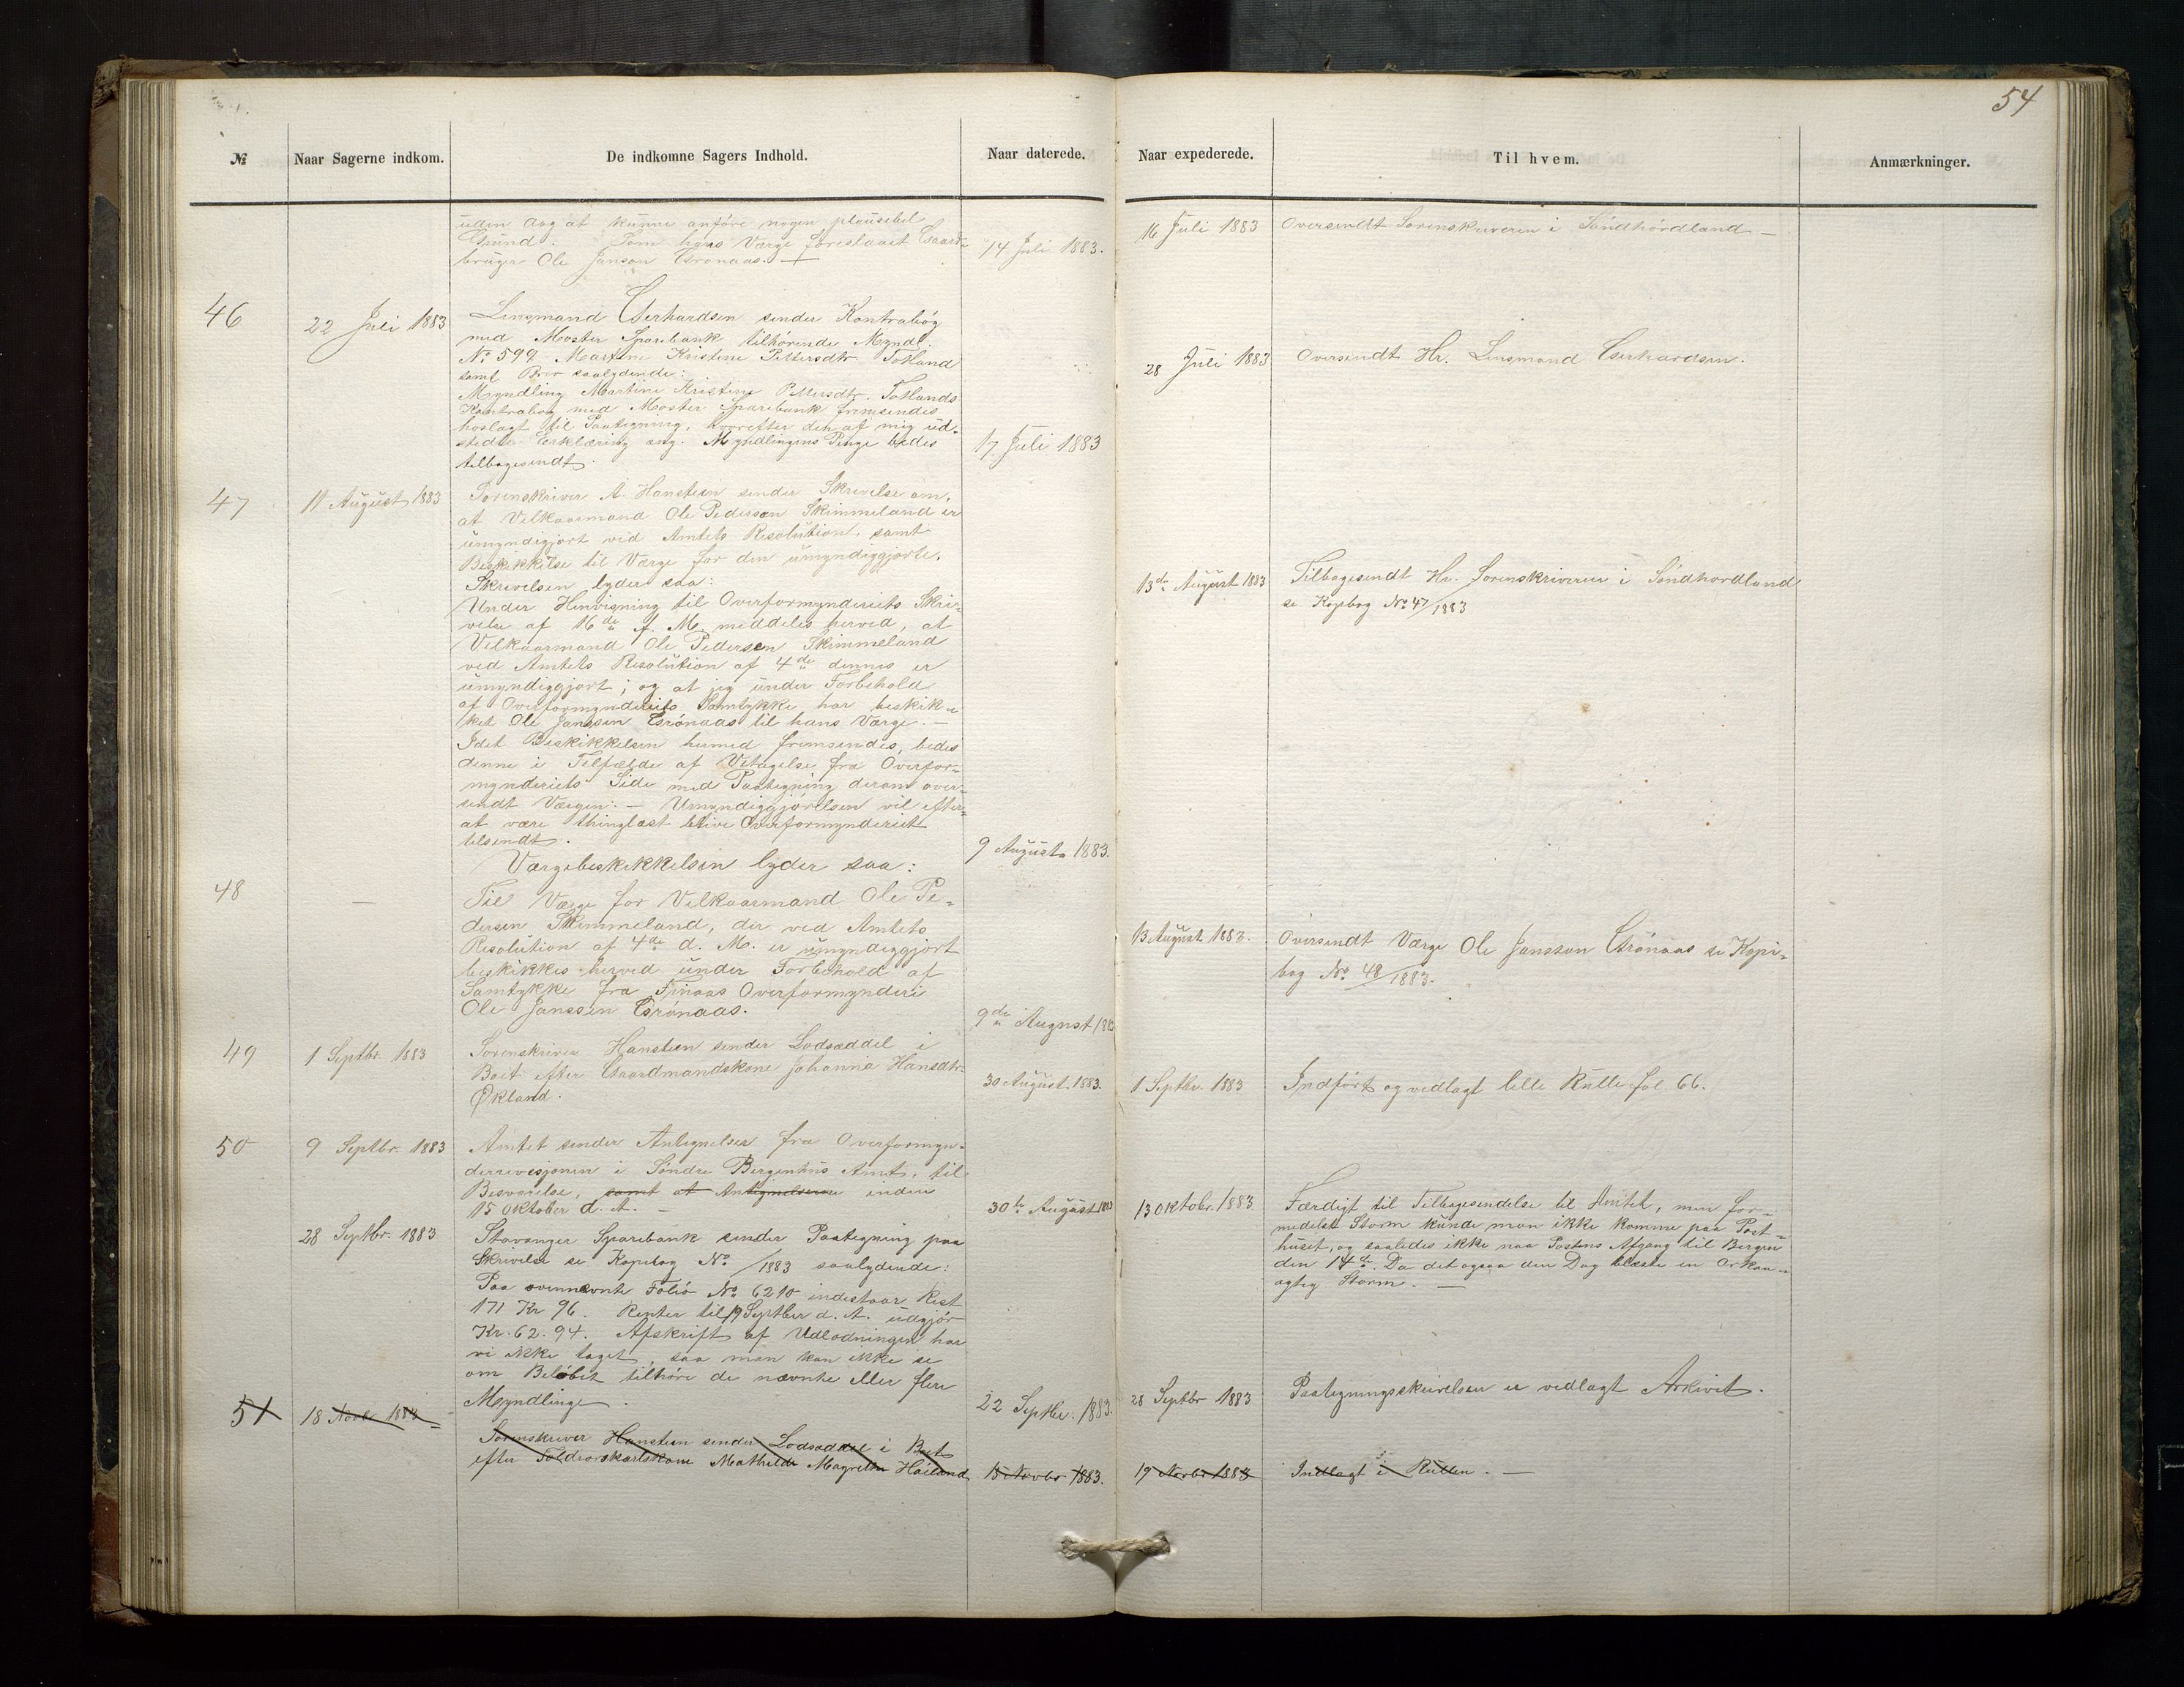 54
№
Naar Sagerne indkom.
De indkomne Sagers Indhold.
Naar daterede.
Naar expederede.
Til hvem.
Anmærkninger.
uden dog at kunne anføre nogen plausibel
Grund. Som hans Værge foreslaaet Gaard-
bruger Ole Janson Grønaas. —
14 Juli 1883.
16 Juli 1883
Oversendt Sorenskriveren i Søndhordland —
46
22 Juli 1883
Lensmand Gerhardsen sender Kontrabog
med Moster Sparebank tilhørende Myndl.
No 599 Martine Kristine Pettersdtr. Totland
samt Brev saalydende:
Myndling Martine Kristine Pettersdtr. Totlands
Kontrabog med Moster Sparebank fremsendes
hoslagt til Paategning, hvorefter den af mig ud-
stedte Erklæring ang. Myndlingens Penge bedes
tilbagesendt.
17 Juli 1883
28 Juli 1883
Oversendt Hr. Lensmand Gerhardsen.
47
11 August 1883
Sorenskriver A. Hansteen sender Skrivelse om,
at Velkaarmand Ole Pedersen Skimmeland er
umyndigjort ved Amtets Resolution, samt
Beskikkelse til Værge for den umyndiggjorte.
Skrivelsen lyder saa:
Under Henvisning til Overformynderiets Skri-
velse af 16de f. M. meddeles herved, at
Velkaarmand Ole Pedersen Skimmeland
ved Amtets Resolution af 4de dennes er
umyndiggjort; og at jeg under Forbehold
af Overformynderiets Samtykke har beskik-
ket Ole Janssen Grønaas til hans Værge. —
Idet Beskikkelsen hermed fremsendes, bedes
denne i Tilfælde af Vetagelse fra Overfor-
mynderiets Side med Paategning derom over-
sendt Værgen. — Umyndiggjørelsen vil efter
at være thinglæst blive Overformynderiet
tilsendt.
9 August 1883.
13de August 1883
Tilbagesendt Hr. Sorenskriveren i Søndhordland
se Kopibog No 47/1883
Værgebeskikkelsen lyder saa:
48
—
Til Værge for Velkaarmand Ole Pe-
dersen Skimmeland, der ved Amtets
Resolution af 4de d. M. er umyndiggjort
beskikkes herved under Forbehold af
Samtykke fra Finaas Overformynderi
Ole Janssen Grønaas.
9de August 1883
13 August 1883.
Oversendt Værge Ole Jansson Grønaas se Kopi-
bog No 48/1883.
49
1 Septbr. 1883
Sorenskriver Hansteen sender Lodsæddel i
Boet efter Gaardmandskone Johanna Hansdtr.
Økland.
30 August 1883.
1 Septbr. 1883
Indført og vedlagt lille Rulle fol. 66.
50
9 Septbr. 1883
Amtet sender Antegnelser fra Overformyn-
derrevisjonen i Søndre Bergenhus Amt, til
Besvarelse, samt at Antegnelserne inden
15 Oktober d. A. —
30te August 1883
13 Oktobr. 1883
Færdigt til Tilbagesendelse til Amtet, men for-
medelst Storm kunde man ikke komme paa Post-
huset, og saaledes ikke naa Postens Afgang til Bergen
den 14de. Da det ogsaa den Dag blæste en Orkan-
agtig Storm. —
28 Septbr. 1883
Stavanger Sparebank sender Paategning paa
Skrivelse se Kopibog No /1883 saalydende:
Paa ovennævnte Folio No 6210 indestaar Rest
171 Kr 96. Renter til 19 Septber d. A. udgjør
Kr. 62. 94. Afskrift af Udlodningen har
vi ikke taget, saa man kan ikke se
om Beløbet tilhøre de nævnte eller flere
Myndlinge.
22 Septbr. 1883.
28 Septbr 1883
Paategningsskrivelsen er vedlagt Arkivet.
51
18 Novbr 1883
Sorenskriver Hansteen sender Lodsæddel i Boet
efter Mathilde Magrethe Høiland
15 Novbr 1883.
19 Novbr 1883
Indlagt i Rullen. —